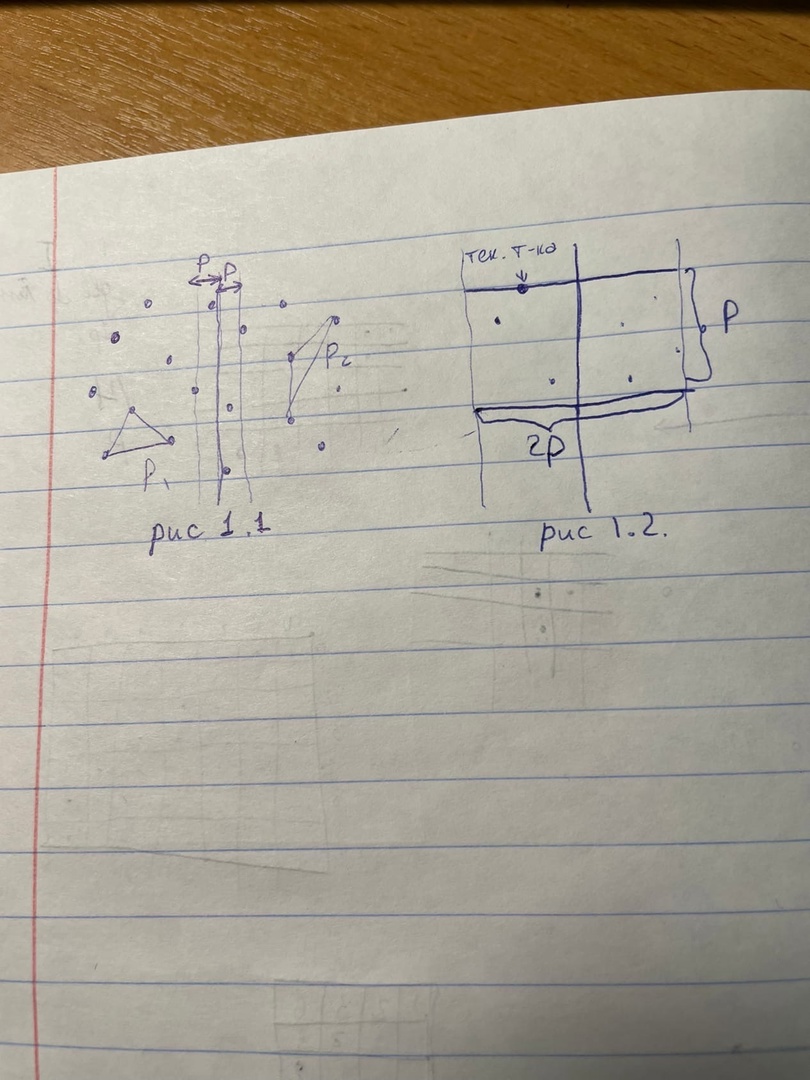 P P
P₂
P₁
рис 1.1
тек. т-ка
P
2P
рис 1.2.